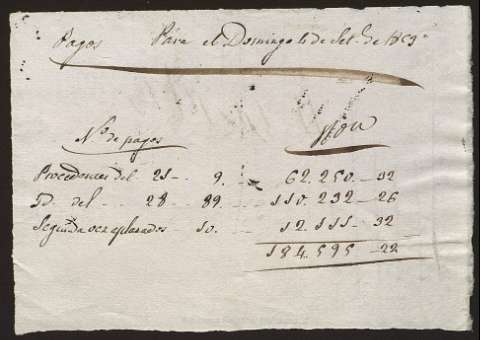 Pagos Para el Domingo 4 de Set.e de
N.o de pagos
Procedentes del 21 9. 62.250 - 32
Yd. del 28 39. 110.232 - 26
Segunda vez aplazados 10. 12.111 - 32
184.595 - 22